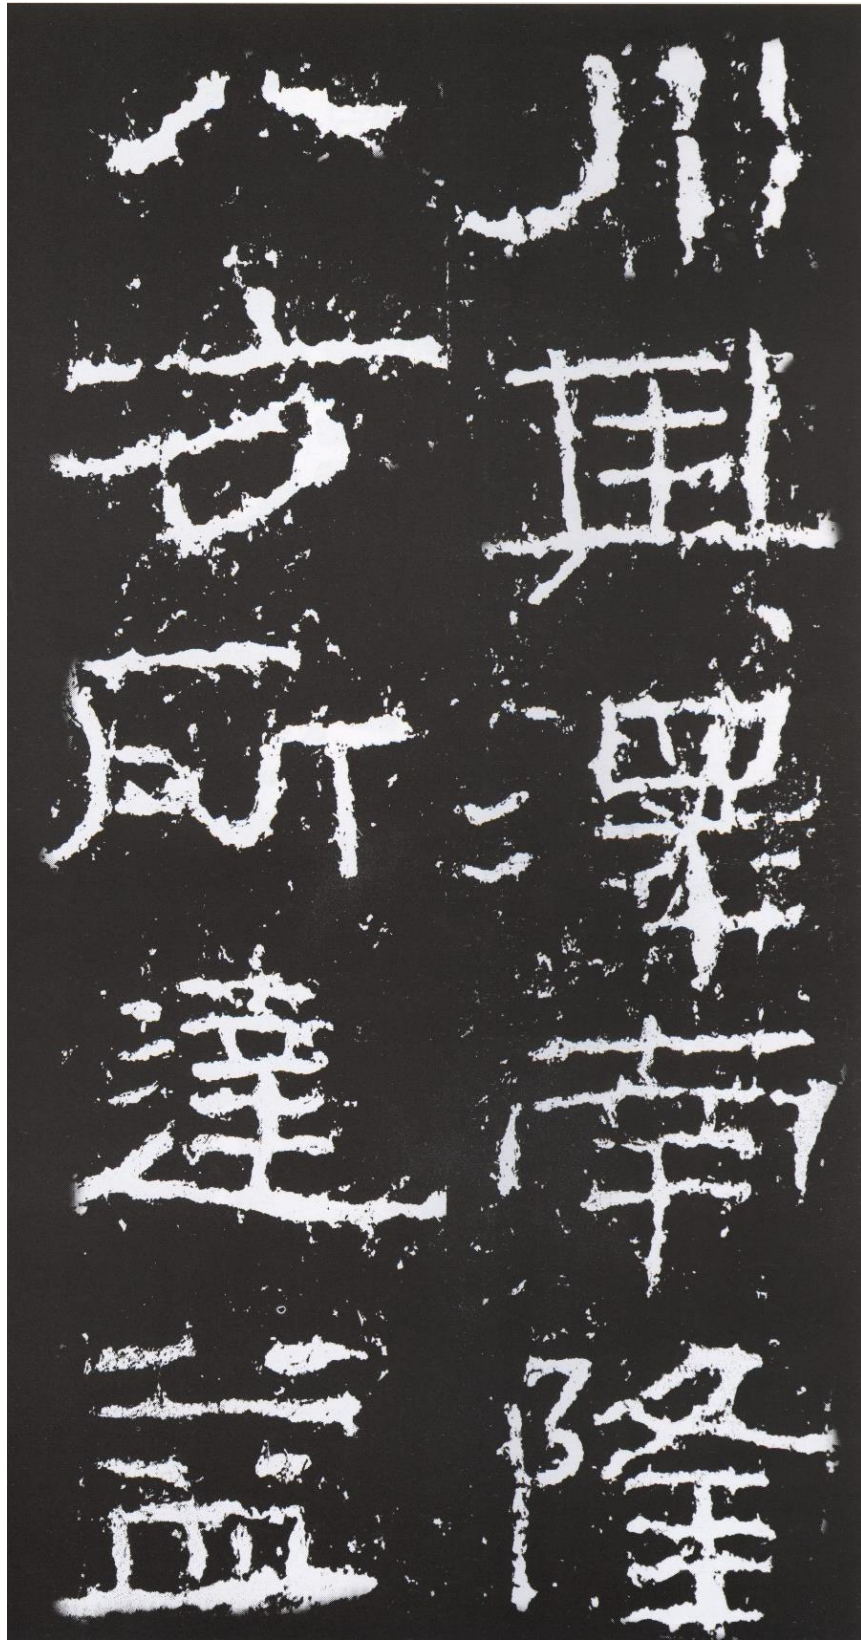 川其澤南隆
八方所達益